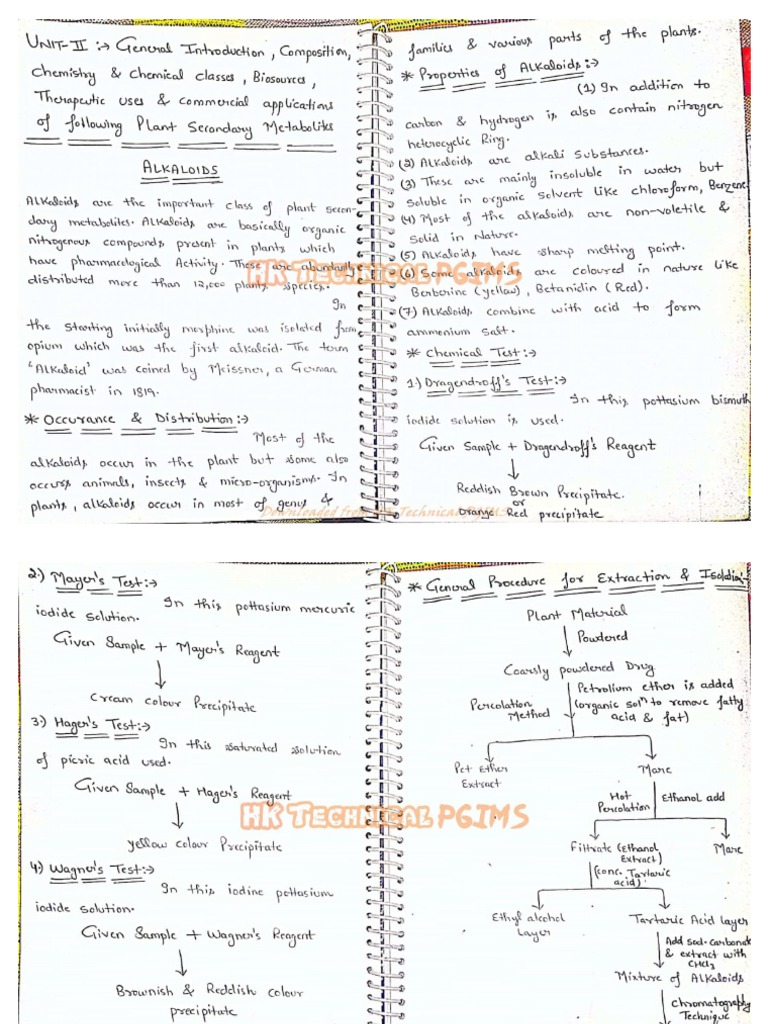 UNIT-II :-> General Introduction, Composition,
Chemistry & Chemical classes, Biosources,
Therapeutic uses & commercial applications
of following Plant Secondary Metabolites
ALKALOIDS
Alkaloids are the important class of plant secon-
dary metabolites. Alkaloids are basically organic
nitrogenous compounds present in plants which
have pharmacological Activity. These are abuntantly
distributed more than 12,000 plants species.
In
the starting initially morphine was isolated from
opium which was the first alkaloid. The term
'Alkaloid' was coined by Meissner, a German
pharmacist in 1819.
* Occurance & Distribution :->
Most of the
alkaloids occur in the plant but some also
occurs animals, insects & micro-organisms. In
plants, alkaloids occur in most of genus &
families & various parts of the plants.
* Properties of Alkaloids :->
(1) In addition to
carbon & hydrogen is also contain nitrogen
heterocyclic Ring.
(2) Alkaloids are alkali substances.
(3) These are mainly insoluble in water but
soluble in organic solvent like chloroform, Benzene
(4) Most of the alkaloids are non-voletile &
solid in Nature.
(5) Alkaloids have sharp melting point.
(6) Some alkaloids are coloured in nature like
Berberine (yellow), Betanidin (Red).
(7) Alkaloids combine with acid to form
ammonium salt.
* Chemical Test :->
1.) Dragendroff's Test :->
In this pottasium bismuth
iodide solution is used.
Given Sample + Dragendroff's Reagent
Reddish Brown Precipitate.
or
Orange Red precipitate
HK TECHNICAL PGIMS
Downloaded from HK Technical PGIMS
2.) Mayer's Test :->
In this pottasium mercuric
iodide solution.
Given Sample + Mayer's Reagent
Cream colour Precipitate
3.) Hager's Test :->
In this saturated solution
of picric acid used.
Given Sample + Hager's Reagent
yellow colour Precipitate
4.) Wagner's Test :->
In this iodine pottasium
iodide solution.
Given Sample + Wagner's Reagent
Brownish & Reddish colour
precipitate
* General Procedure for Extraction & Isolation
Plant Material
Powdered
Coarsly powdered Drug
Percolation
Method
Petrolium ether is added
(organic solⁿ to remove fatty
acid & fat)
Pet Ether
Extract
Marc
Hot
Percolation
Ethanol add
Filtrate (Ethanol
Extract)
Marc
(conc. Tartaric
acid)
Ethyl alcohol
Layer
Tartaric Acid layer
Add sod. carbonate
& extract with
CHCl3
Mixture of Alkaloids
Chromatography
Technique
HK TECHNICAL PGIMS